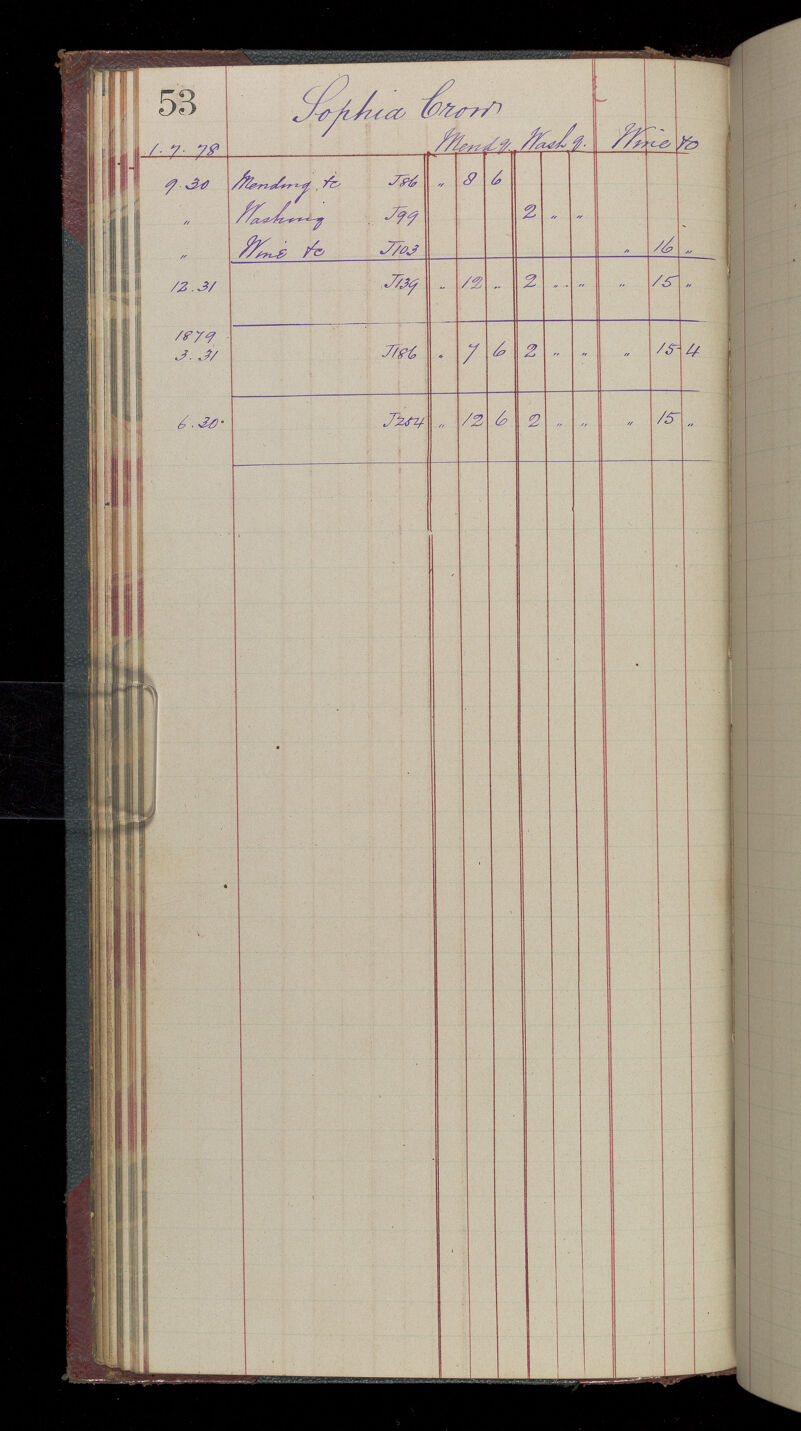 53 Sophia Crow
1.7.78 Mendg. Washg. Wine &c
9.30 Mending &c J86 " 8 6
" Washing J99 2 " "
" Wine &c J103 " 16 "
12.31 J139 " 12 " 2 " " " 15 "
1879
3.31 J186 " 7 6 2 " " " 15 4
6.30 J254 " 12 6 2 " " " 15 "